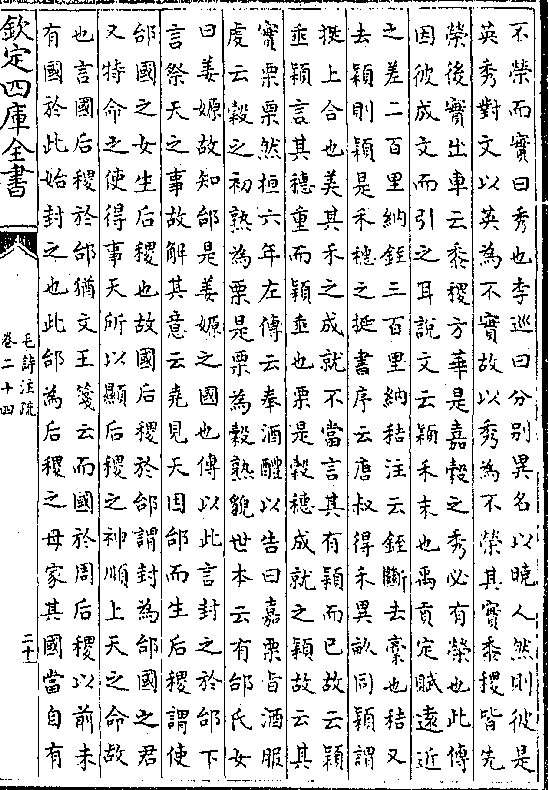 不榮而實曰秀也李巡曰分别異名以曉人然則彼是
英秀對文以英為不實故以秀為不榮其實黍稷皆先
榮後實出車云黍稷方華是嘉穀之秀必有榮也此傳
因彼成文而引之耳說文云穎禾末也禹貢定賦遠近
之差二百里納銍三百里納秸注云銍斷去稾也秸又
去穎則穎是禾穗之挺書序云唐叔得禾異畝同穎謂
挺上合也美其禾之成就不當言其有穎而已故云穎
垂穎言其穗重而穎垂也栗是穀穗成就之穎故云其
實栗栗然桓六年左傳云奉酒醴以告曰嘉栗旨酒服
虔云穀之初熟為栗是栗為穀熟貌世本云有邰氏女
曰姜嫄故知邰是姜嫄之國也傳以此言封之於邰下
言祭天之事故解其意云堯見天因邰而生后稷謂使
邰國之女生后稷也故國后稷於邰謂封為邰國之君
又特命之使得事天所以顯后稷之神順上天之命故
也言國后稷於邰猶文王箋云而國於周后稷以前未
有國於此始封之也此邰為后稷之母家其國當自有
欽定四庫全書
毛詩注疏
卷二十四
二十